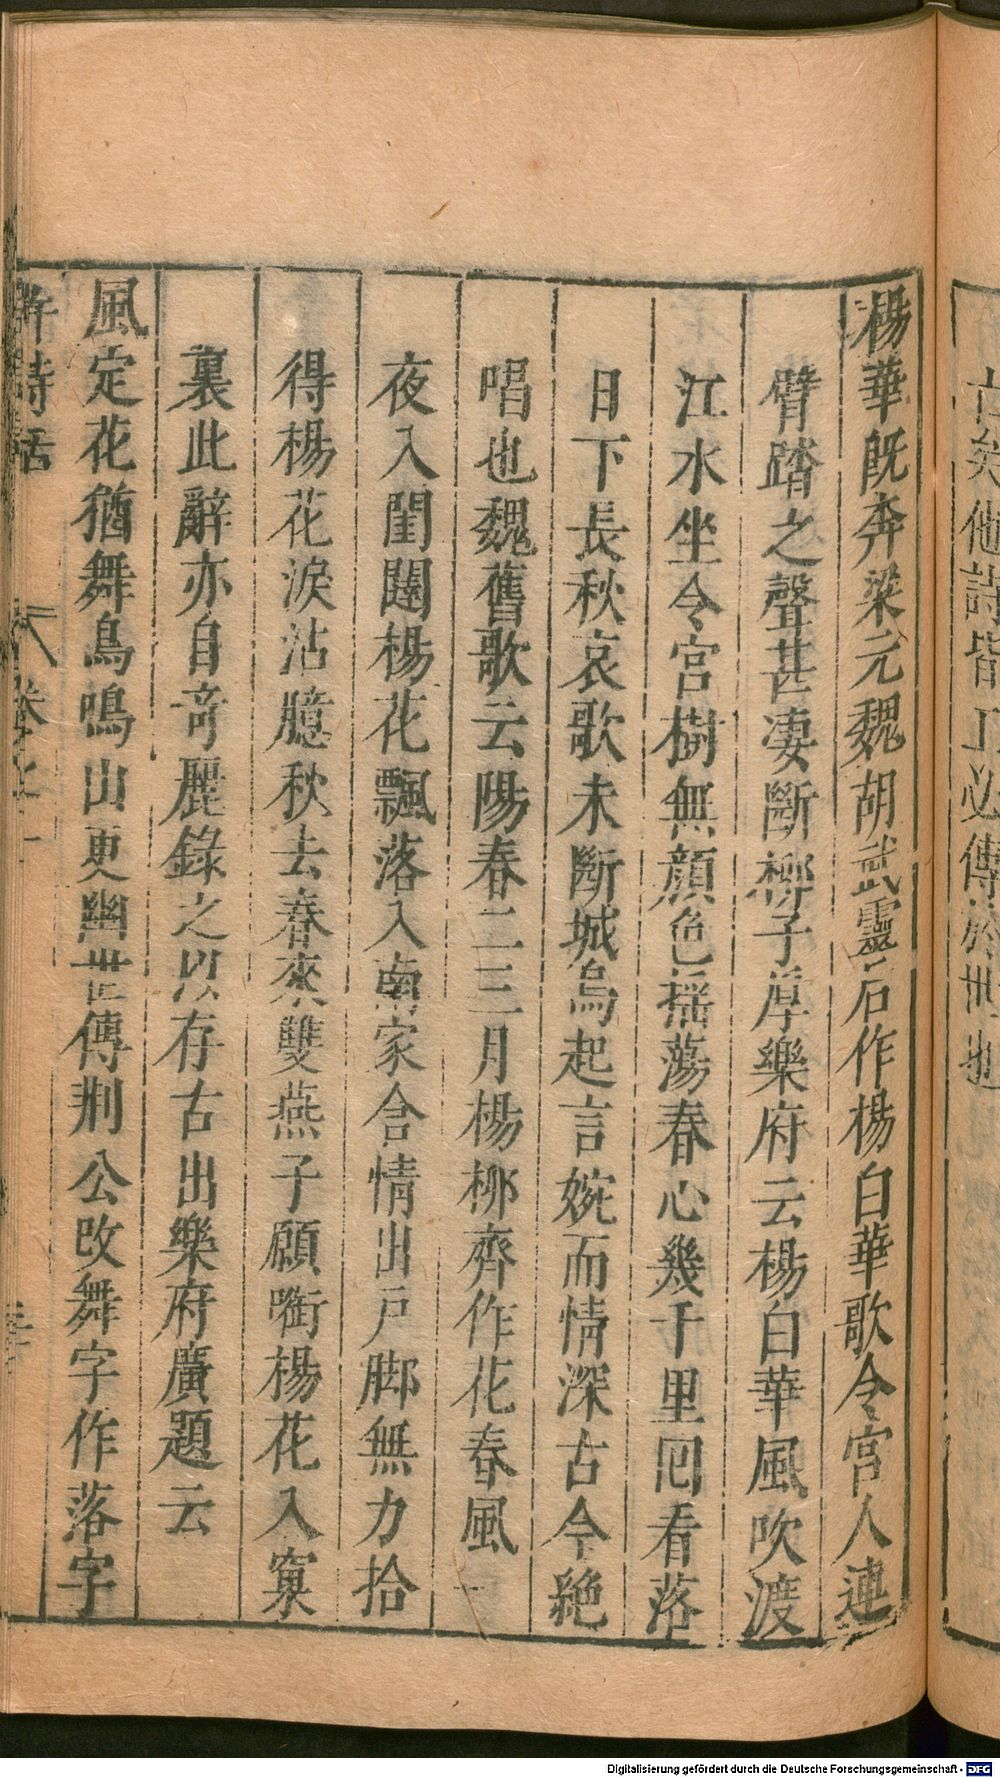 亡矣他詩皆工必傳於世也
楊華旣奔梁元魏胡武靈后作楊白華歌令宮人連
臂踏之聲甚凄斷栁子厚樂府云楊白華風吹渡
江水坐令宮樹無顏色揺蕩春心幾千里囘看落
日下長秋哀歌未斷城烏起言婉而情深古今絶
唱也魏舊歌云陽春二三月楊栁齊作花春風一
夜入閨闥楊花飄落入南家含情出戸脚無力拾
得楊花淚沾臆秋去春來雙燕子願啣楊花入窠
裏此辭亦自奇麗錄之以存古出樂府廣題云
風定花猶舞鳥鳴山更幽世傳荆公改舞字作落字
詩話
卷之
Digitalisierung gefördert durch die Deutsche Forschungsgemeinschaft - DFG